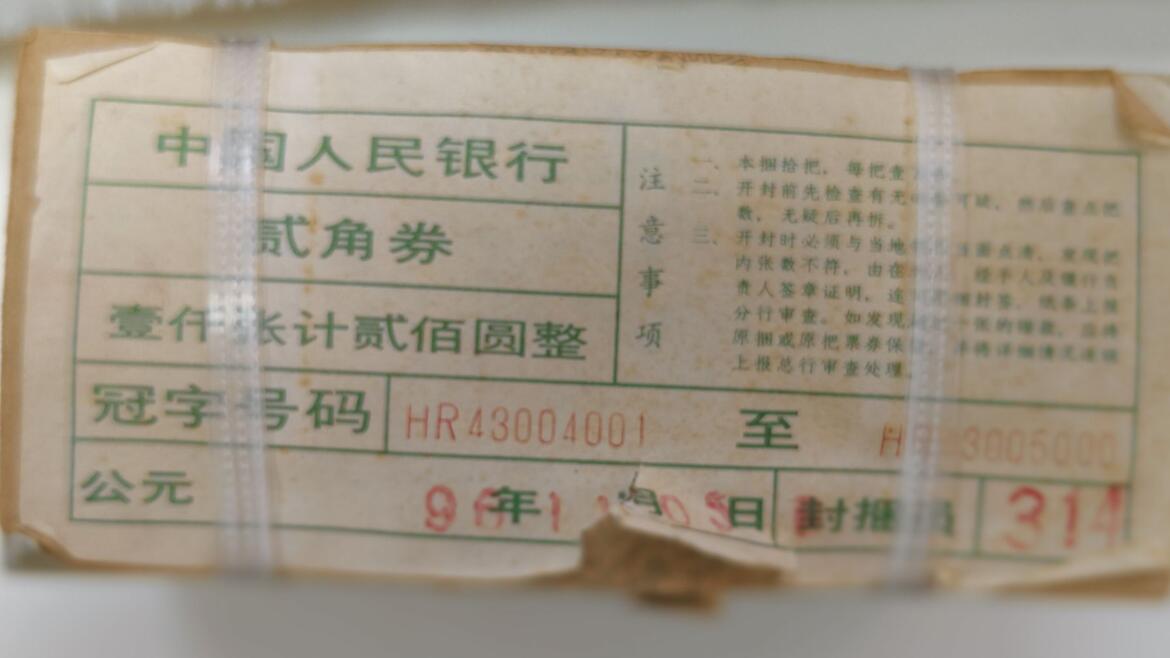 中国人民银行
贰角券
壹仟张计贰佰圆整
冠字号码 HR43004001 至 HR43005000
公元 96年11月05日 封捆员 314
注意事项
一、本捆拾把，每把查
二、开封前先检查有无 可疑，然后查点把
数，无疑后再拆。
三、开封时必须与当地 当面点清，发现把
内张数不符，由在 经手人及银行负
责人签章证明，连 捆封签、纸条上报
分行审查。如发现 一张的 ，应将
原捆或原把票券保 并将详细情况速报
上报总行审查处理。